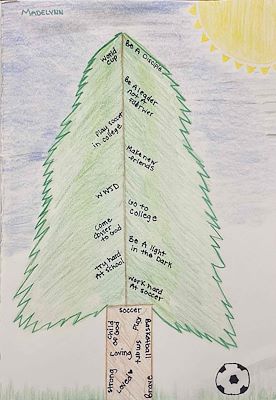 MADELYNN
World
cup
Be A Disciple
Be A leader
not A
follower
Play soccer
in college
Make new
friends
WWJD
Go to
college
Come
closer
to God
Be A light
in the Dark
Try hard
At school
Work hard
At soccer
soccer
child
of God
Play
Basketball
Loving
smart
strong
Loved
Brave